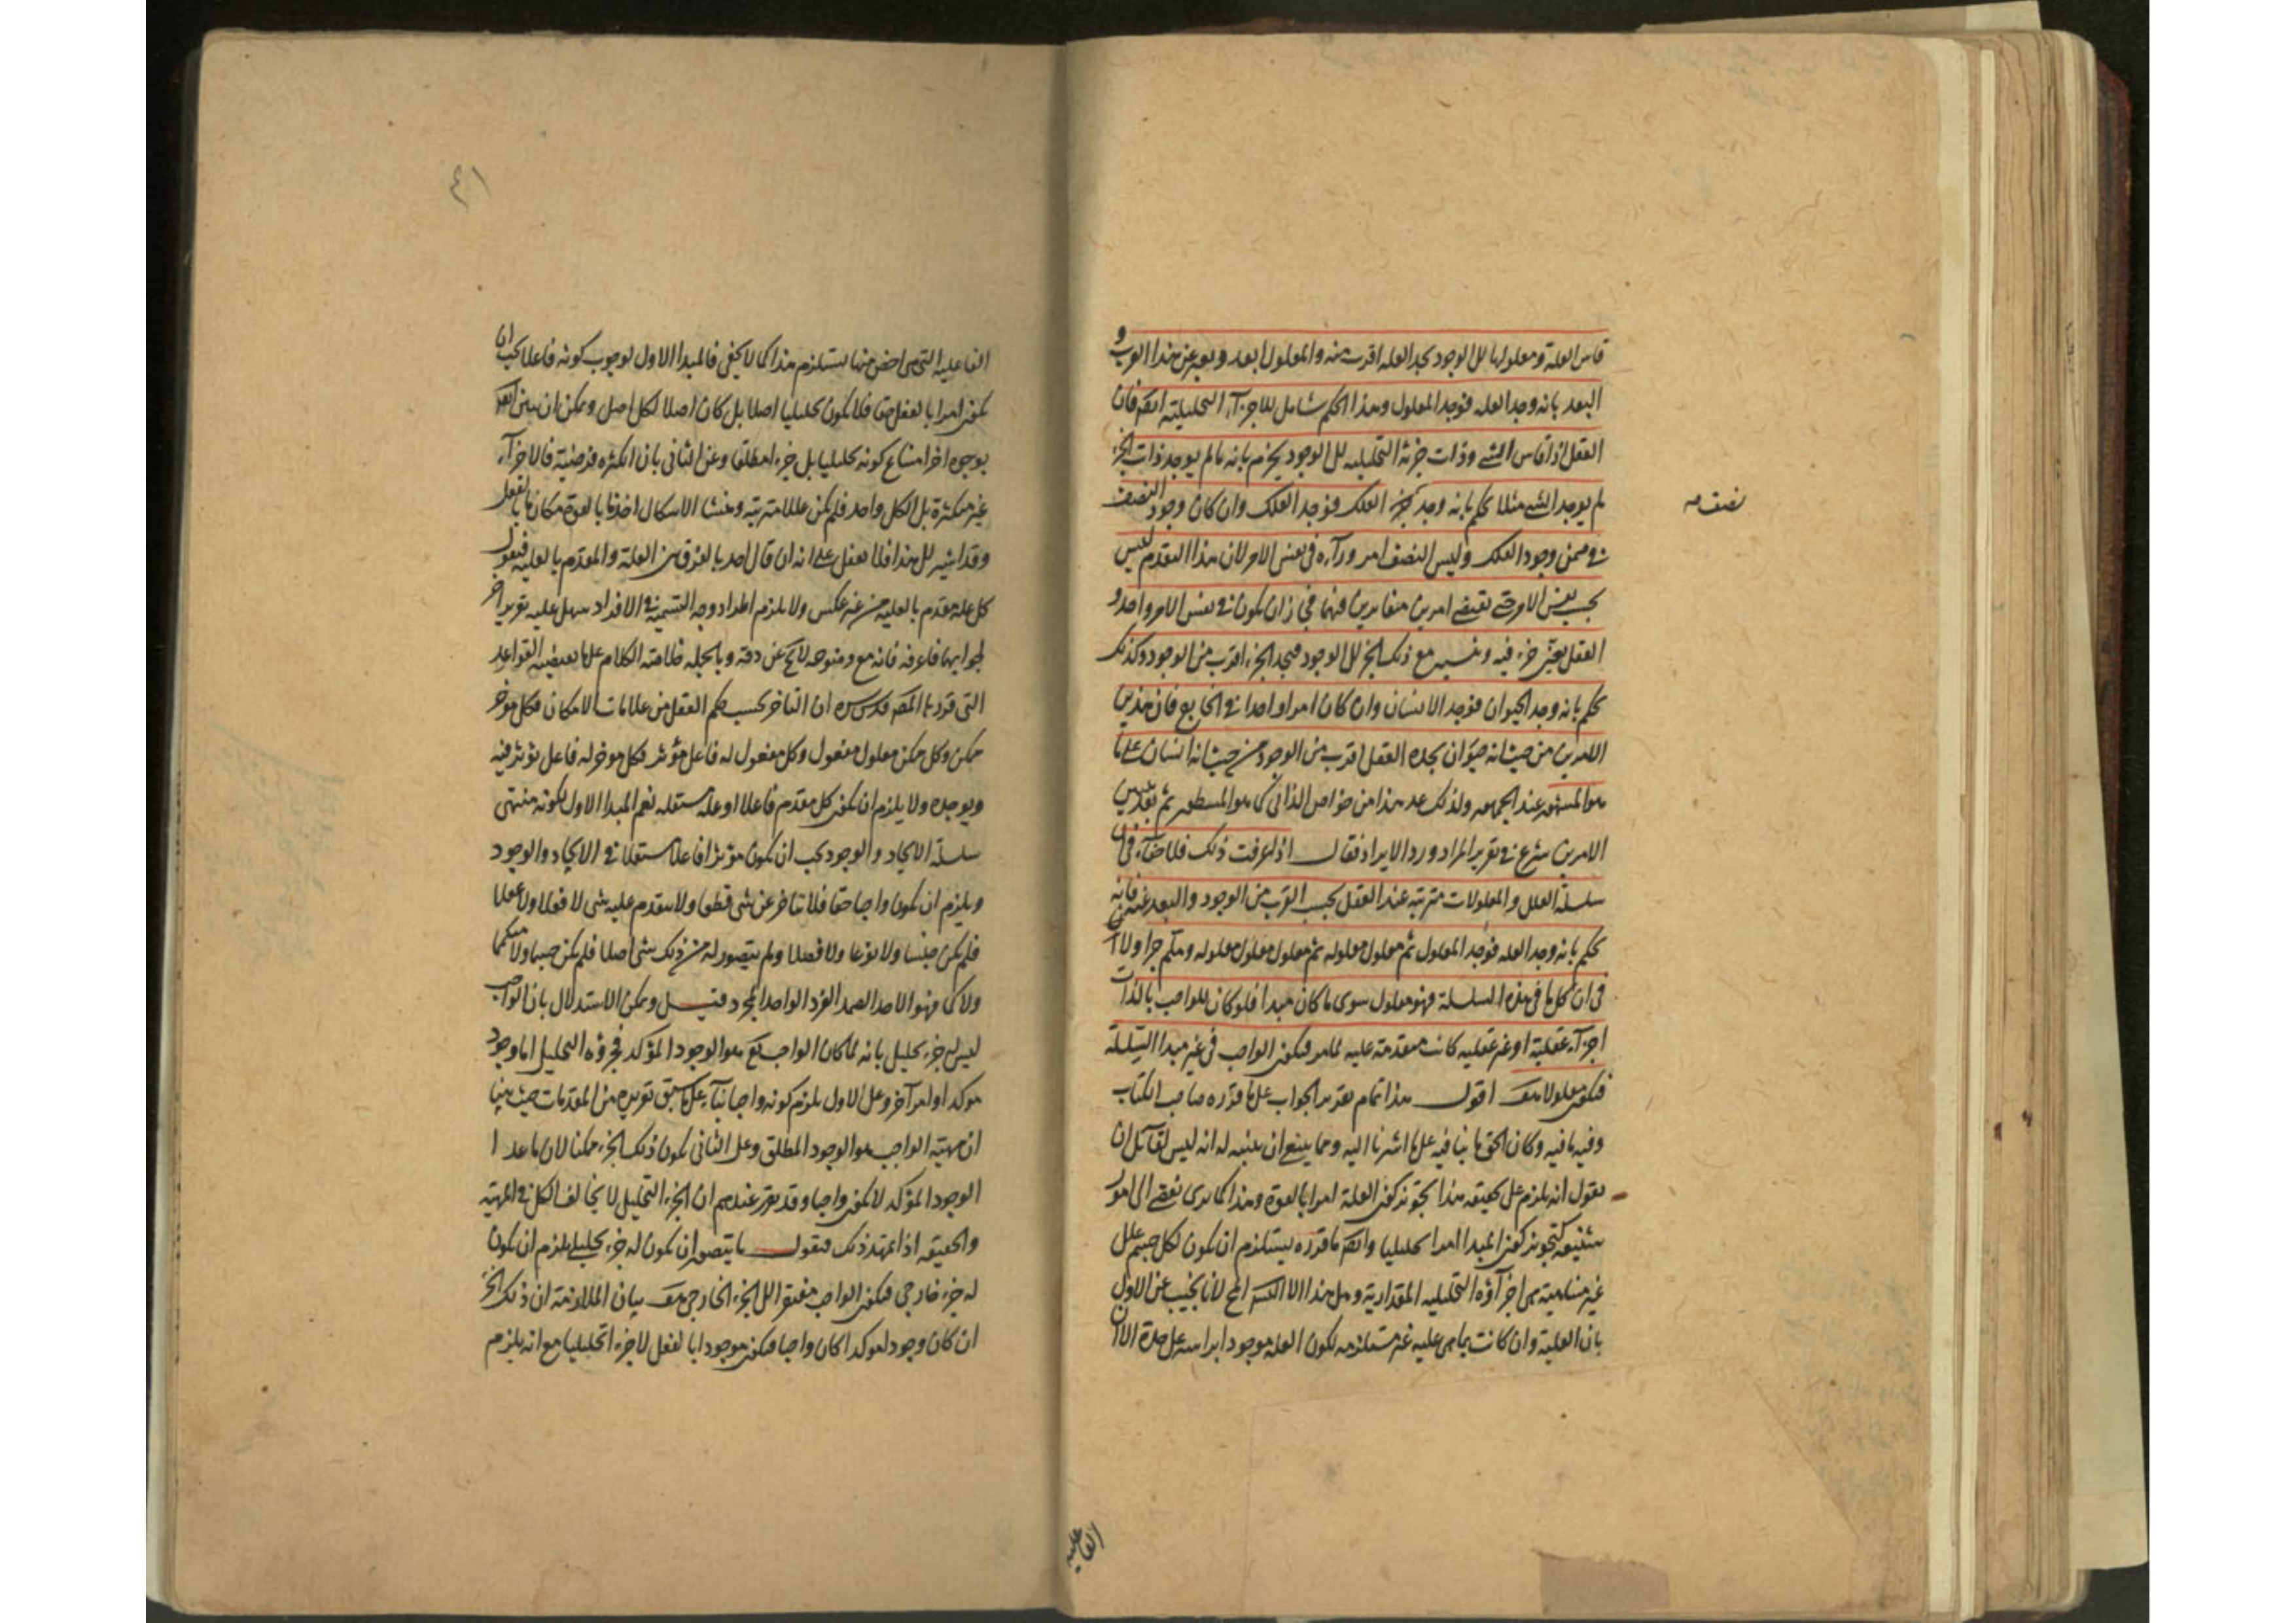 قاس العلة ومعلولها الى الوجود يجد العله اقرب منه والمعلول ابعد ويعبر عن هذا القرب و
البعد بانه وجد العله فوجد المعلول وهذا الحكم شامل للاجزآء التحليلية ايضا فان
العقل اذا قاس الشئ وذات جزئه التحليليه الى الوجود يجزم بانه ما لم يوجد ذات الجزء
لم يوجد الشئ مثلا يحكم بانه وجد الفلك فوجد الفلك وان كان وجود النصف
نصف صه
فى ضمن وجود الفلك وليس النصف امر ورآءه فى نفس الامر لان هذا التقدم ليس
بحسب نفس الامر حتى يقتضى امرين متغايرين فيها فجاز ان يكون فى نفس الامر واحد و
العقل جزء فيه مع ذلك الجزء الى الوجود فيجد الجزء اقرب من الوجود وكذلك
يحكم بانه وجد الحيوان فوجد الانسان وان كان امرا واحدا فى الخارج فان هذين
الامرين من حيث انه حيوان يجده العقل اقرب من الوجود من حيث انه انسان على ما
هو المشهور عند الجمهور ولذلك عد هذا من خواص الذاتى كما هو المسطور ثم بعد
الامرين شرع فى تقرير المراد ورد الايراد فقال اذا عرفت ذلك فلا خفآء فى ان
سلسلة العلل والمعلولات مترتبه عند العقل بحسب القرب من الوجود والبعد عنه فانه
يحكم بانه وجد العله فوجد المعلول ثم معلول معلوله ثم معلول معلول معلوله وهلم جرا ولا
فى ان كل ما فى هذه السلسلة فهو معلول سوى ما كان مبدا فلو كان للواجب بالذات
اجزآء عقلية او غير عقليه كانت متقدمة عليه لما مر فيكون الواجب فى غير مبدا السلسلة
فيكون معلولا هف اقول هذا تمام تقرير الجواب على ما قرره صاحب الكتاب
وفيه ما فيه وكان الحق ما بينا فيه على ما اشرنا اليه ومما ينبغى ان ينبه له انه ليس لقآئل ان
يقول انه يلزم على تحقيقه هذا تجويز كون العلة امرا بالقوة وهذا كما ترى يفضى الى امور
شنيعه كتجويز كون المبدا امرا تحليليا وايضا ما قرره يستلزم ان يكون لكل جسم علل
غير متناهية هى اجزآؤه التحليليه المقدارية وهل هذا الا لانا نجيب عن الاول
بان العلية وان كانت بما هى عليه غير مستلزمه لكون العله موجودا براسه على حدة الا ان
الفاعليه
١
الفاعليه التى هى اخص منها يستلزم هذا كما لا يخفى فالمبدا الاول لوجوب كونه فاعلا يجب ان
يكون امرا بالفعل حقا فلا يكون تحليليا اصلا بل كان اصلا لكل اصل ويمكن ان يبين ايضا
بوجوه اخر امتناع كونه تحليليا بل جزءا مطلقا وعن الثانى بان الكثره فرضية فالاجزآء
غير متكثرة بل الكل واحد فلم يكن عللا مترتبه ومنشا الاشكال اخذ ما بالقوة مكان ما بالفعل
وقد اشير الى هذا فلا تغفل على انه ان قال احد بالفرق بين العلة والمقدم بالعليه فيقول
كل علة مقدم بالعليه من غير عكس ولا يلزم اطراد وجه التسمية فى الافراد سهل عليه تقرير اخر
لجوابهما فاعرفه فانه مع وضوحه لا يخ عن دقه وبالجمله خلاصة الكلام على ما يقتضيه القواعد
التى قررها المصه قدس سره ان التاخر بحسب حكم العقل من علامات الامكان فكل مؤخر
ممكن وكل ممكن معلول مفعول وكل مفعول له فاعل مؤثر فكل مؤخر له فاعل يؤثر فيه
ويوجده ولا يلزم ان يكون كل مقدم فاعلا او علة مستقله نعم المبدا الاول لكونه منتهى
سلسلة الايجاد والوجود يجب ان يكون مؤثرا فاعلا مستقلا فى الايجاد والوجود
ويلزم ان يكون واجبا حقا فلا يتاخر عن شى قطعا ولا يتقدم عليه شى لا فعلا ولا عقلا
فلم يكن جنسا ولا نوعا ولا فصلا ولم يتصور له من ذلك شى اصلا فلم يكن جسما ولا
ولا كما فهو الاحد الصمد الفرد الواحد المجرد قيل ويمكن الاستدلال بان الواجب
ليس له جزء تحليلى بانه لما كان الواجب تع هو الوجود المؤكد فجزؤه التحليلى اما وجود
موكد او امر آخر وعلى الاول يلزم كونه واجبا بنآء على ما سبق تقريره من المقدمات حيث بينا
ان مهية الواجب هو الوجود المطلق وعلى الثانى يكون ذلك الجزء ممكنا لان ما عدا
الوجود المؤكد لا يكون واجبا وقد تقرر عندهم ان الجزء التحليلى لا يخالف الكل فى المهية
والحقيقه اذا تمهد ذلك فنقول ما يتصور ان يكون له جزء تحليلى يلزم ان يكون
له جزء خارجى فيكون الواجب مفتقرا الى الجزء الخارجى هف بيان الملازمة ان ذلك الجزء
ان كان وجودا موكدا كان واجبا فيكون موجودا بالفعل لا جزءا تحليليا مع انه يلزم